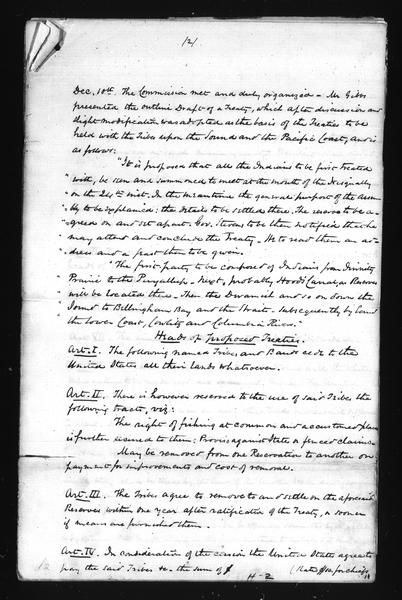 /2/
Dec. 10th. The Commission met and duly organized - Mr Gibbs
presented the outline Draft of a Treaty, which after discussion and
slight modification was adopted as the basis of the Treaties to be
held with the Tribes upon the Sound and the Pacific Coast, and is
as follows:
"It is proposed that all the Indians to be first treated
with, be seen and summoned to meet at the mouth of the Nisqually
on the 24th inst. In the meantime the general purport of the assem
bly to be explained; the details to be settled there. The reserve to be a-
greed on and set apart. Gov. Stevens to be then notified that he
may attend and conclude the Treaty. He to read them an ad-
dress and a feast then to be given.
"The first party to be composed of Indians from
Prairie to the Puyallup. Next, probably Hood's Canal, as Reserves
will be located there. Then the Dwamish and so on down the
Sound to Bellingham Bay and the Strait. Subsequently by land
the lower Coast, Cowlitz and Columbia River.
Heads of Proposed Treaties.
Art. I. The following named Tribes and Bands cede to the
United States all their lands whatsoever.
Art. II. There is however reserved to the use of said Tribes the
following tracts, viz:
The right of fishing at common and accustomed places
is further secured to them: Proviso against Staked or fenced claims.
May be removed from one Reservation to another on
payment for improvements and cost of removal.
Art. III. The Tribes agree to remove to and settle on the aforesaid
Reserves within one year after ratification of the Treaty, or sooner
if means are furnished them.
Art. IV. In consideration of the cession the United States agree to
pay the said Tribes &c. the sum of $ (Rate for chiefs
H-2